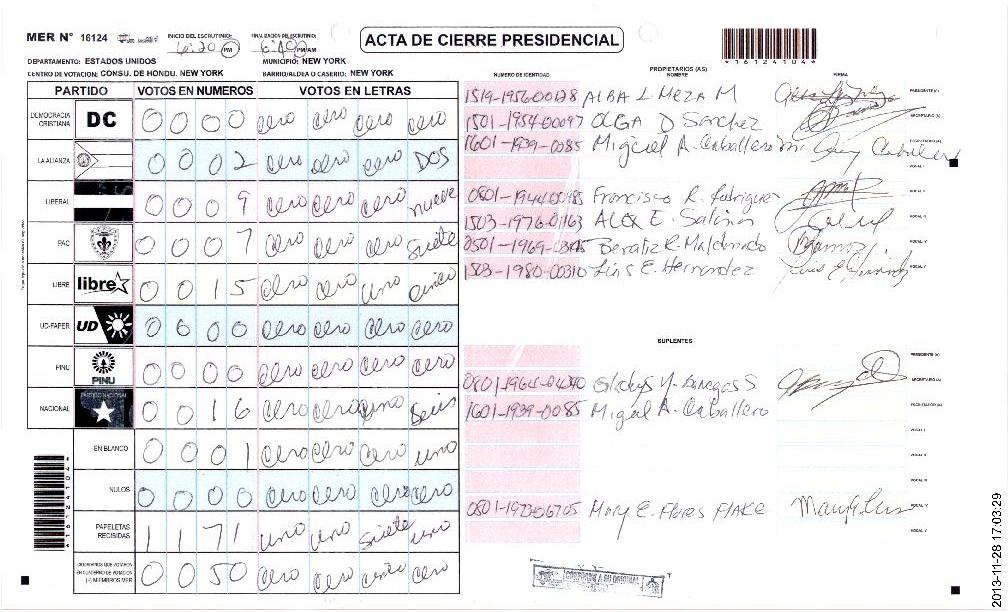 MER N° 16124 INICIO DEL ESCRUTINIO: 6:20 PM FINALIZACION DEL ESCRUTINIO: PM/AM
ACTA DE CIERRE PRESIDENCIAL
*16124104*
DEPARTAMENTO: ESTADOS UNIDOS MUNICIPIO: NEW YORK
CENTRO DE VOTACION: CONSU. DE HONDU. NEW YORK BARRIO/ALDEA O CASERIO: NEW YORK
PARTIDO VOTOS EN NUMEROS VOTOS EN LETRAS
DEMOCRACIA CRISTIANA DC 0 0 0 0 cero cero cero cero
LA ALIANZA 0 0 0 2 cero cero cero DOS
LIBERAL 0 0 0 9 cero cero cero nueve
PAC 0 0 0 7 cero cero cero Siete
LIBRE libre 0 0 1 5 cero cero uno cinco
UD-FAPER UD 0 0 0 0 cero cero cero cero
PINU PINU 0 0 0 0 cero cero cero cero
NACIONAL PARTIDO NACIONAL 0 0 1 6 cero cero uno Seis
EN BLANCO 0 0 0 1 cero cero cero uno
NULOS 0 0 0 0 cero cero cero cero
PAPELETAS RECIBIDAS 1 1 7 1 uno uno siete uno
CIUDADANOS QUE VOTARON EN CUADERNO DE VOTACION (+) MIEMBROS MER 0 0 5 0 cero cero cinco cero
*16124104*
PROPIETARIOS (AS)
NUMERO DE IDENTIDAD NOMBRE FIRMA
1519-1956-00128 ALBA L. MEZA M PRESIDENTE (A)
1501-1954-00097 OLGA D Sanchez SECRETARIO (A)
1601-1939-0085 Miguel A. Caballero ESCRUTADOR (A)
VOCAL I
0801-1944-00485 Francisco R. Rodriguez
1503-1976-01163 ALEX E. Salinas
0501-1969- Beratiz R. Maldonado VOCAL IV
1503-1980-00310 Luis E. Hernandez VOCAL V
SUPLENTES
PRESIDENTE (A)
Gladys Y. Banegas S SECRETARIO (A)
1601-1939-0085 Migual A. Caballero ESCRUTADOR (A)
VOCAL I
0801-1973-06705 Mary E. Flores FLAKE VOCAL IV
VOCAL V
2013-11-28 17:03:29